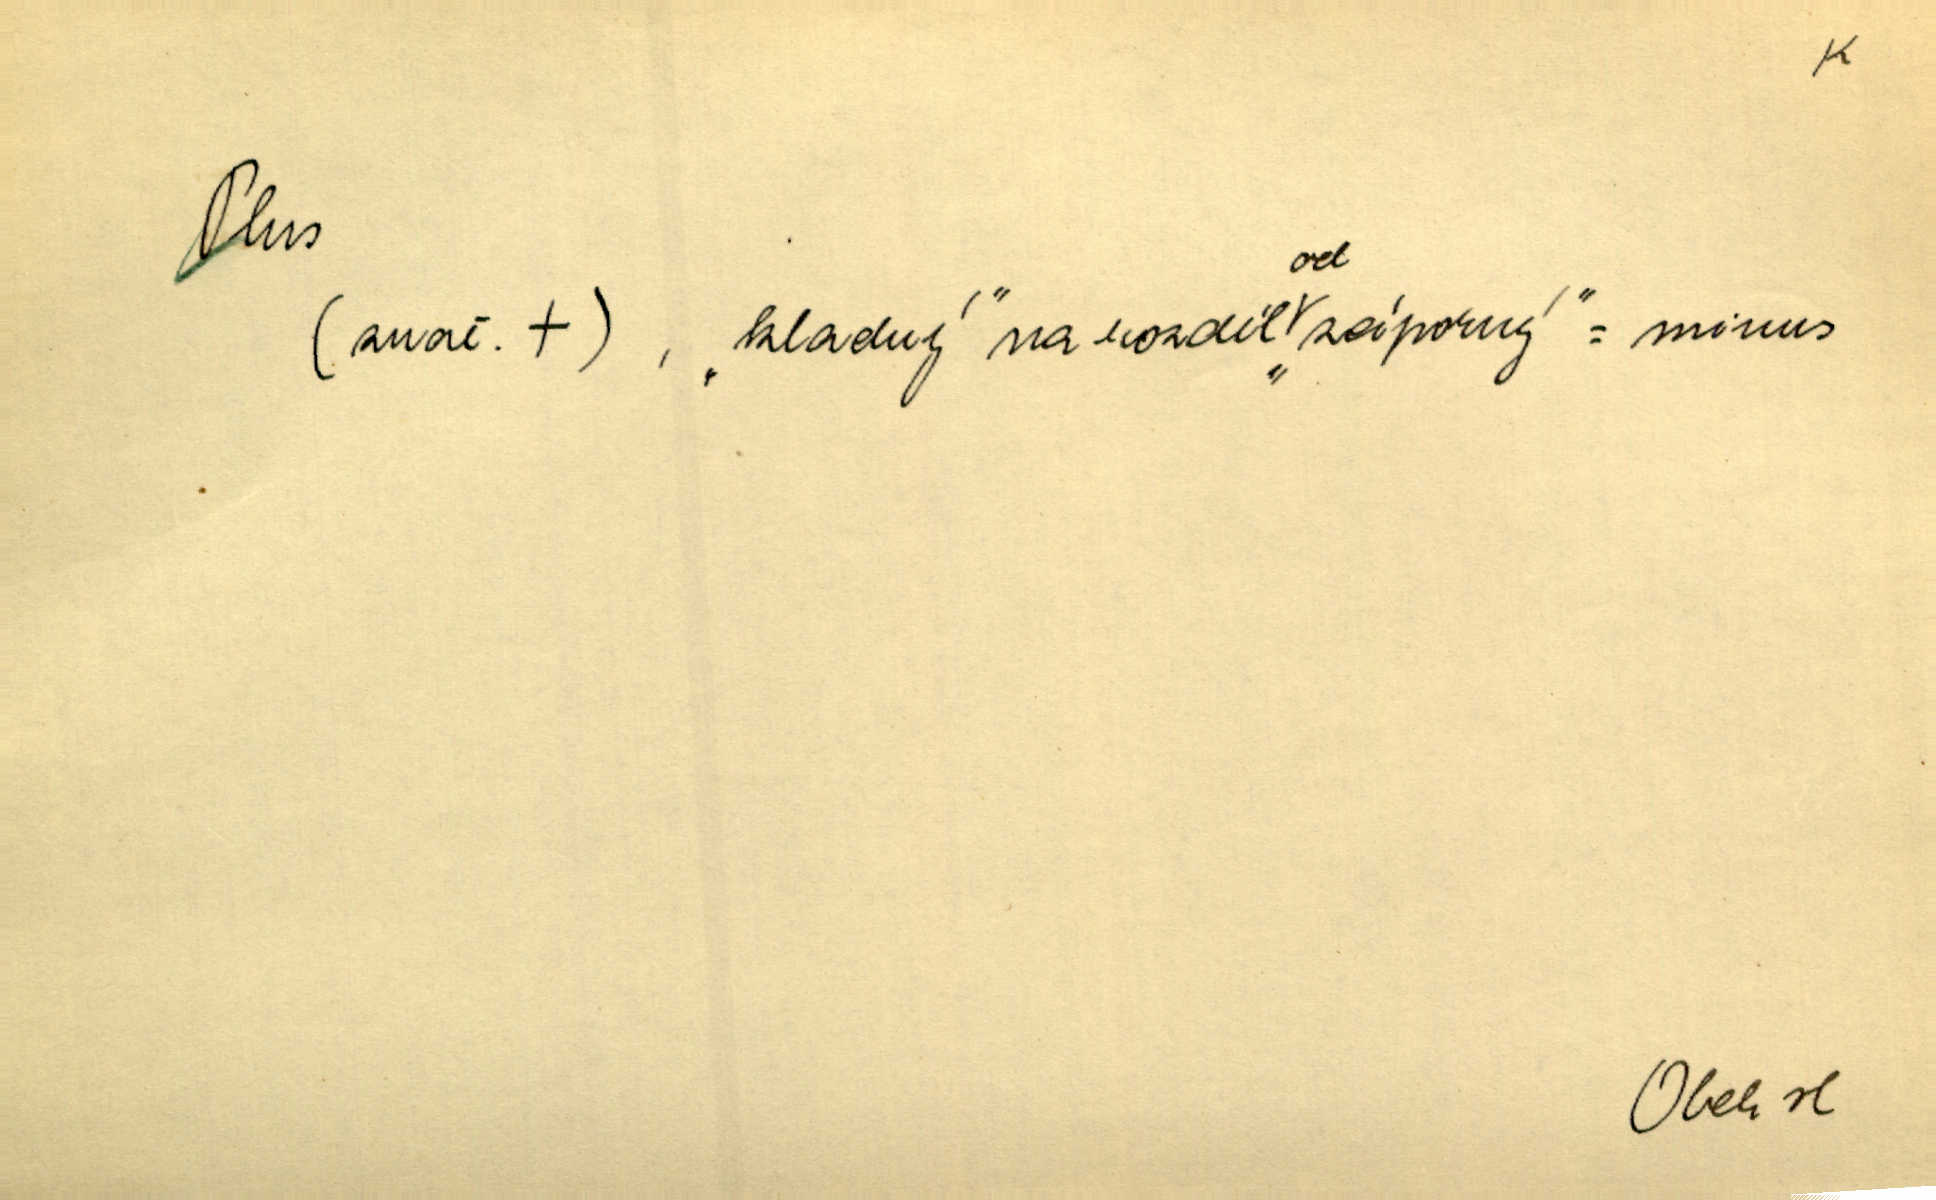 K
Plus
(znač. +), „kladný" na rozdíl od „záporný" = minus
Obch sl